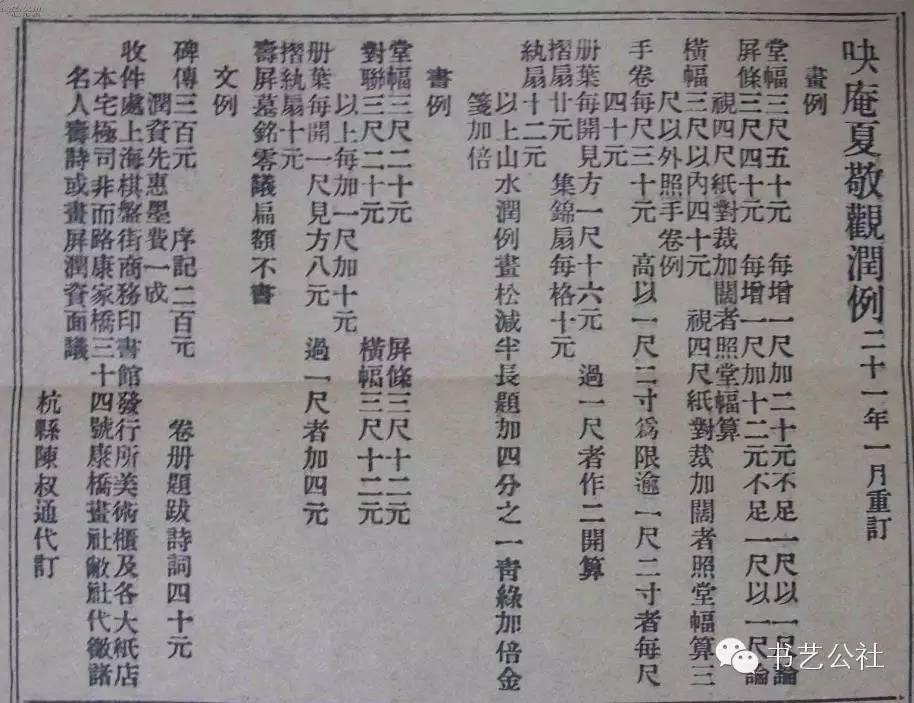 吷庵夏敬觀潤例二十一年一月重訂
畫例
堂幅三尺五十元　每增一尺加二十元不足一尺以一尺論
屏條三尺四十元　每增一尺加十二元不足一尺以一尺論
視四尺紙對裁加闊者照堂幅算
橫幅三尺以內四十元　視四尺紙對裁加闊者照堂幅算三
尺以外照手卷例
手卷每尺三十元　高以一尺二寸爲限逾一尺二寸者每尺
四十元
册葉每開見方一尺十六元　過一尺者作二開算
摺扇廿元　集錦扇每格十元
紈扇十二元
以上山水潤例畫松減半長題加四分之一靑綠加倍金
箋加倍
書例
堂幅三尺二十元　屏條三尺十二元
對聯三尺二十元　橫幅三尺十二元
以上每加一尺加十元
册葉每開一尺見方八元　過一尺者加四元
摺紈扇十元
壽屏墓銘零議扁額不書
文例
碑傳三百元　序記二百元　卷册題跋詩詞四十元
潤資先惠墨費一成
收件處上海棋盤街商務印書館發行所美術櫃及各大紙店
本宅極司非而路康家橋三十四號康橋畫社敝社代徵諸
名人壽詩或畫屏潤資面議
杭縣陳叔通代訂
书艺公社